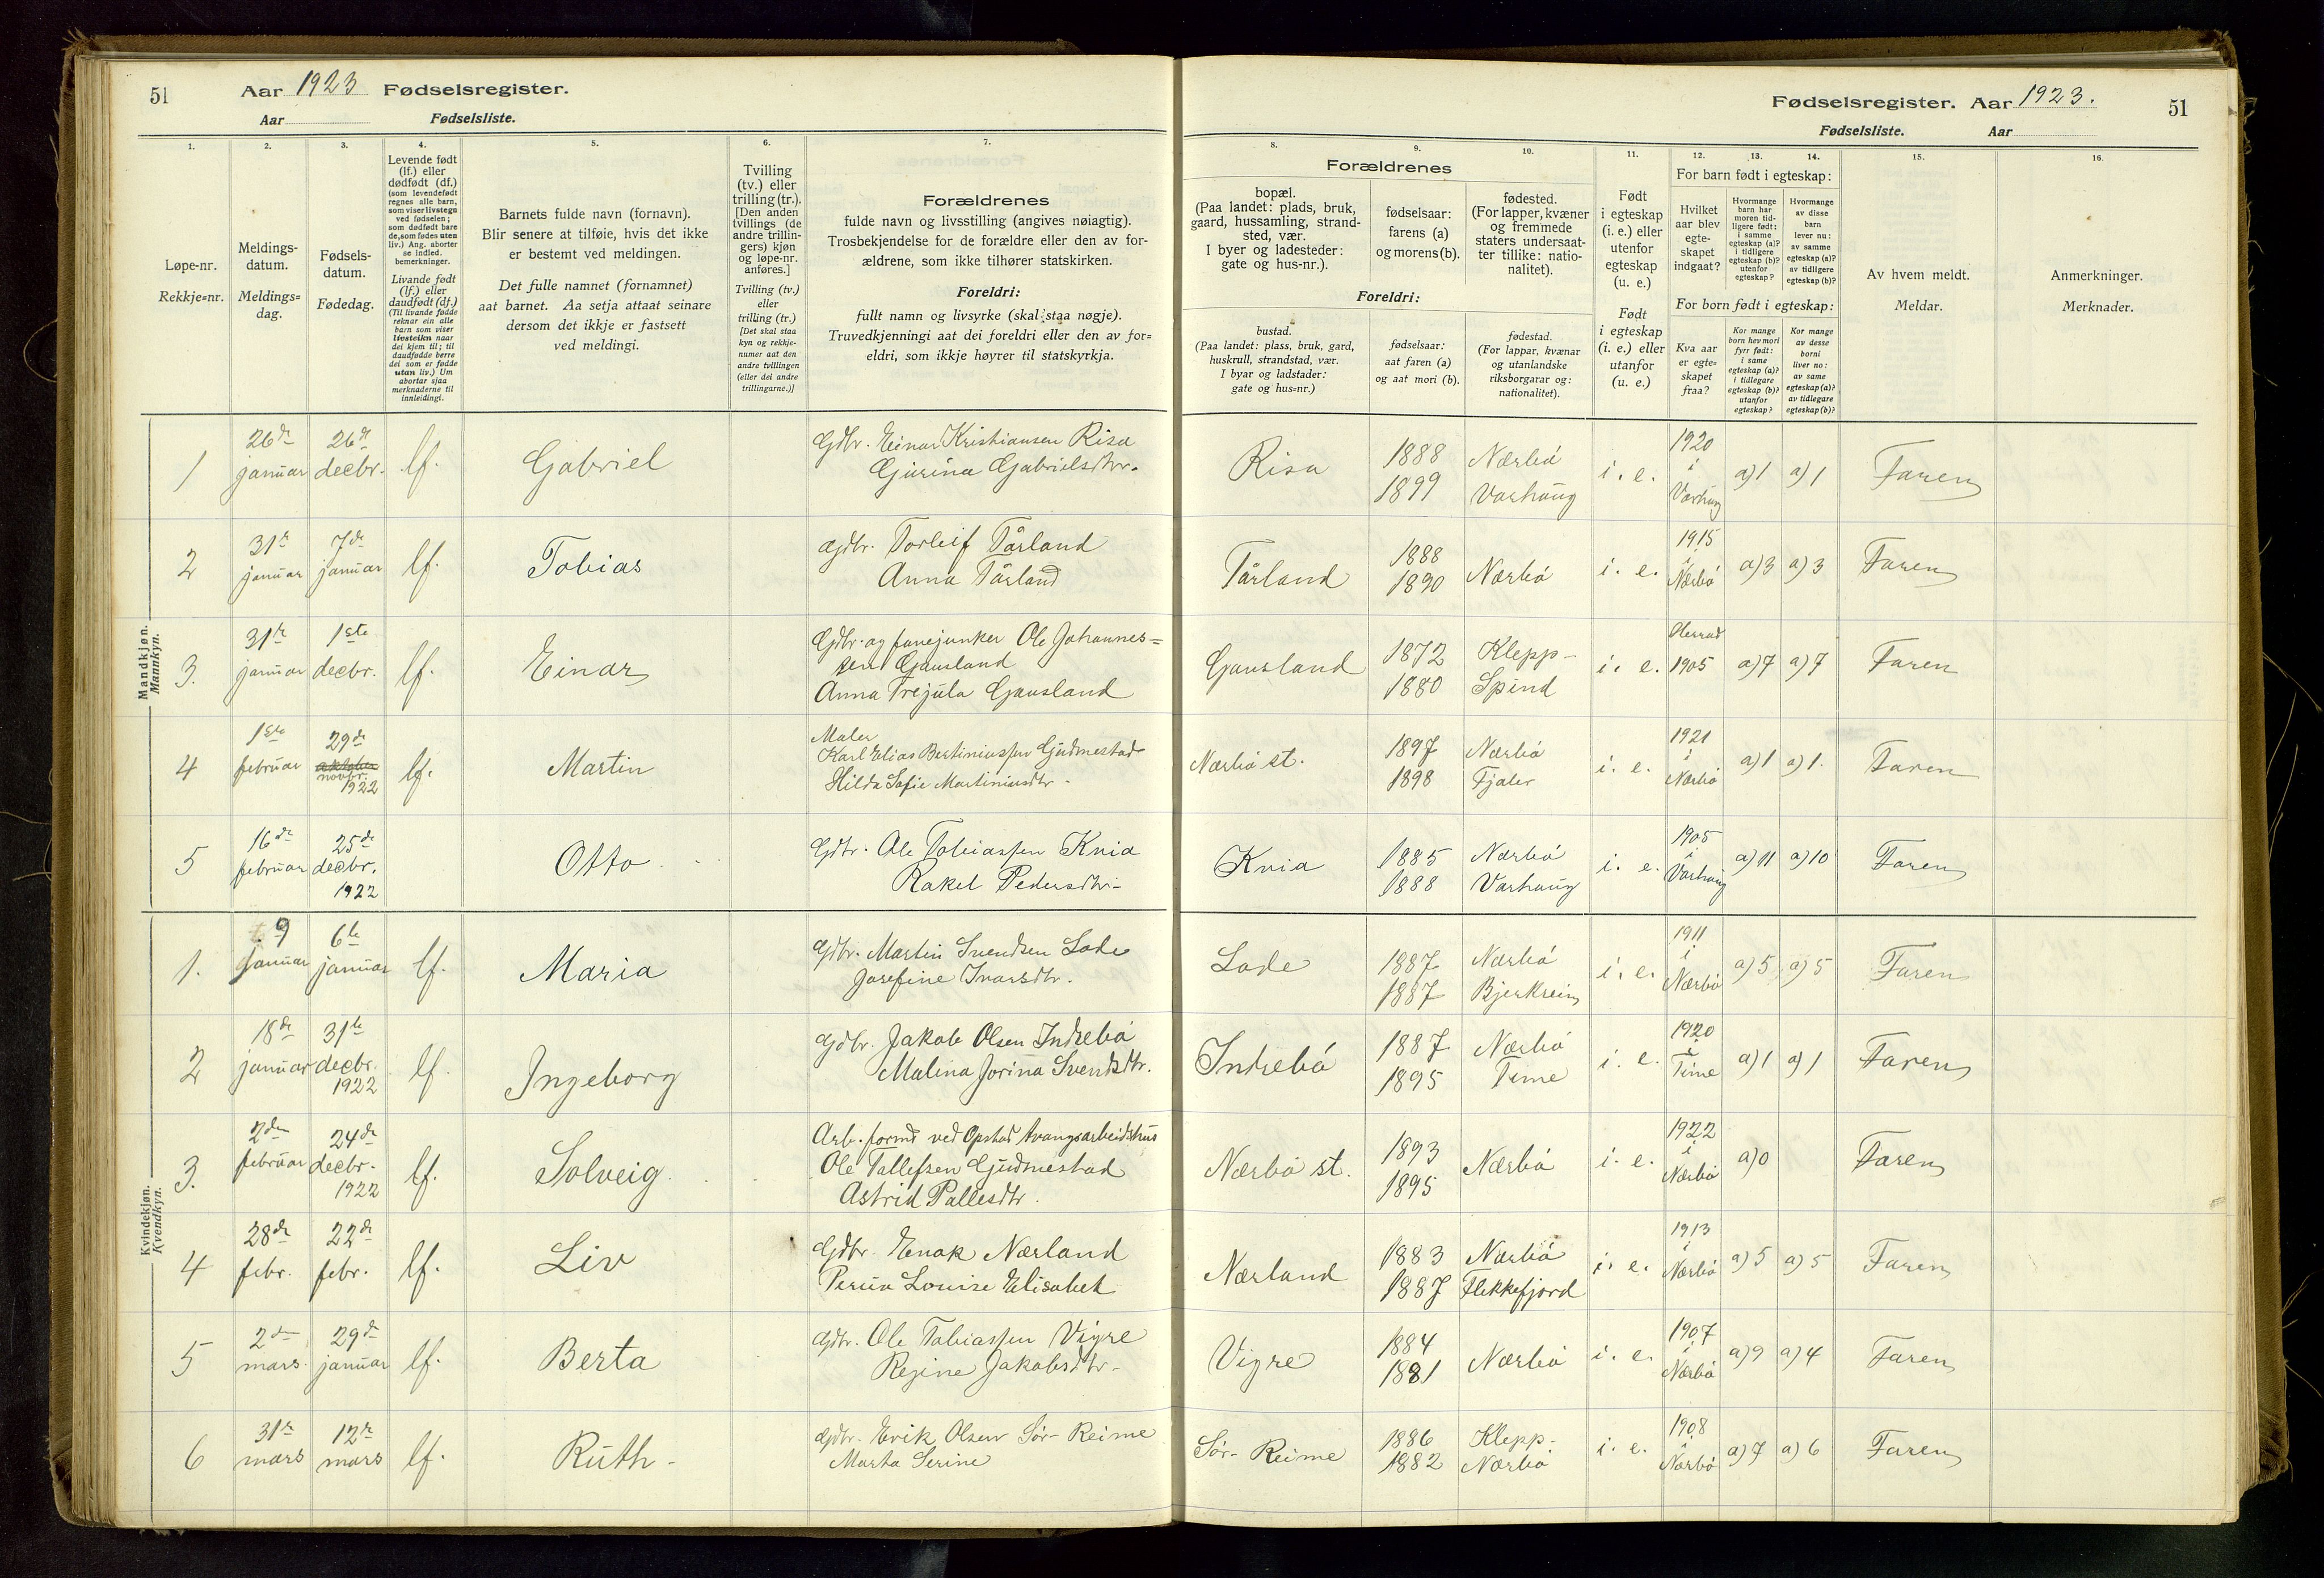 51 Aar 1923 Fødselsregister.
Aar Fødselsliste.
Fødselsregister. Aar 1923. 51
Fødselsliste. Aar
1. 2. 3. 4. 5. 6. 7.
Løpe-nr.
Rekkje=nr.
Meldings-
datum.
Meldings=
dag.
Fødsels-
datum.
Fødedag.
Levende født
(lf.) eller
dødfødt (df.)
(som levendefødt
regnes alle barn,
som viser livstegn
ved fødselen;
som dødfødt bare
de, som fødes uten
liv.) Ang. aborter
se indled.
bemerkninger.
Livande født
(lf.) eller
daudfødt (df.)
(Til livande fødde
reknar ein alle
barn som viser
livsteikn naar
dei kjem til; til
daudfødde berre
dei som er fødde
utan liv.) Um
abortar sjaa
merknaderne til
innleidingi.
Barnets fulde navn (fornavn).
Blir senere at tilføie, hvis det ikke
er bestemt ved meldingen.
Det fulle namnet (fornamnet)
aat barnet. Aa setja attaat seinare
dersom det ikkje er fastsett
ved meldingi.
Tvilling
(tv.) eller
trilling (tr.).
[Den anden
tvillings (de
andre trillin-
gers) kjøn
og løpe-nr.
anføres.]
Tvilling (tv.)
eller
trilling (tr.)
[Det skal staa
kyn og rekkje-
numer aat den
andre tvillingen
(eller dei andre
trillingarne.)]
Forældrenes
fulde navn og livsstilling (angives nøiagtig).
Trosbekjendelse for de forældre eller den av for-
ældrene, som ikke tilhører statskirken.
Foreldri:
fullt namn og livsyrke (skal staa nøgje).
Truvedkjenningi aat dei foreldri eller den av for=
eldri, som ikkje høyrer til statskyrkja.
8. 9. 10. 11. 12. 13. 14. 15. 16.
Forældrenes
bopæl.
(Paa landet: plads, bruk,
gaard, hussamling, strand-
sted, vær.
I byer og ladesteder:
gate og hus-nr.).
fødselsaar:
farens (a)
og morens (b).
fødested.
(For lapper, kvæner
og fremmede
staters undersaat-
ter tillike: natio-
nalitet).
Foreldri:
bustad.
(Paa landet: plass, bruk, gard,
huskrull, strandstad, vær.
I byar og ladstader:
gate og hus-nr.)
fødselsaar:
aat faren (a)
og aat mori (b).
fødestad.
(For lappar, kvænar
og utanlandske
riksborgarar og:
nationalitet).
Født
i egteskap
(i. e.) eller
utenfor
egteskap
(u. e.)
Født
i egteskap
(i. e.) eller
utanfor
(u. e.)
For barn født i egteskap:
Hvilket
aar blev
egte-
skapet
indgaat?
Hvormange
barn har
moren tid-
ligere født:
i samme
egteskap (a)?
i tidligere
egteskap (b)?
utenfor
egteskap?
Hvormange
av disse
barn
lever nu:
av samme
egteskap (a)?
av tidligere
egteskap (b)?
For born født i egteskap:
Kva aar
er egte-
skapet
fraa?
Kor mange
born hev mori
fyrr født:
i same
egteskap (a)?
i tidlegare
egteskap (b)?
utanfor
egteskap?
Kor mange
av desse
borni
liver no:
av same
egteskap (a)?
av tidlegare
egteskap (b)?
Av hvem meldt.
Meldar.
Anmerkninger.
Merknader.
Mandkjøn.
Mannkyn.
1 26de januar 26de decbr. lf. Gabriel
Gdbr. Einar Kristiansen Risa
Gurina Gabrielsdtr.
Risa 1888 1899 Nærbø Varhaug i. e. 1920 i Varhaug a)1 a)1 Faren
2 31te januar 7de januar lf. Tobias
Gdbr. Torleif Tårland
Anna Tårland
Tårland 1888 1890 Nærbø i. e. 1915 i Nærbø a)3 a)3 Faren
3. 31te januar 1ste decbr. lf. Einar
Gdbr. og fanejunker Ole Johannes=
sen Gausland
Anna Trejula Gausland
Gausland 1872 1880 Klepp- Spind i. e. 1905 a)7 a)7 Faren
4 1ste februar 29de novbr. 1922 lf. Martin
Maler
Karl Elias Bertiniussen Gudmestad
Hilda Sofie Martiniusdtr
Nærbø st. 1897 1898 Nærbø Fjaler i. e. 1921 i Nærbø a)1 a)1. Faren
5 16de februar 25de decbr. 1922 Otto
Gdbr. Ole Tobiassen Kvia
Rakel Pedersdtr-
Kvia 1885 1888 Nærbø Varhaug i. e. 1905 i Varhaug a)11 a)10 Faren
Kvindekjøn.
Kvendkyn.
1. 9 januar 6te januar lf. Maria
Gdbr. Martin Svendsen Lode
Josefine Ivarsdtr.
Lode 1887 1887 Nærbø Bjerkreim i. e. 1911 i Nærbø a)5 a)5 Faren
2 18de januar 31te decbr. 1922 lf. Ingeborg
Gdbr. Jakob Olsen Indrebø
Malina Jorina Svendsdtr.
Indrebø 1887 1895 Nærbø Time i. e. 1920 i Time a)1 a)1 Faren
3. 2den februar 24de decbr. 1922 lf. Solveig
Arb. formd ved Opstad tvangsarbeidshus
Ole Tollefsen Gudmestad
Astrid Pallesdtr.
Nærbø st. 1893 1895 Nærbø i. e. 1922 i Nærbø a)0 Faren
4 28de febr. 22de febr. lf. Liv
Gdbr. Enok Nærland
Louise Elisabet
Nærland 1883 1887 Nærbø Flekkefjord i. e. 1913 i Nærbø a)5 a)5 Faren
5 2den mars 29de januar lf. Berta
Gdbr. Ole Tobiassen Vigre
Regine Jakobsdtr-
Vigre 1884 1881 Nærbø i. e. 1907 i Nærbø a)9 a)4 Faren
6 31te mars 12te mars lf. Ruth-
Gdbr- Erik Olsen Sør-Reime
Marta Serine
Sør-Reime 1886 1882 Klepp- Nærbø i. e. 1908 i Nærbø a)7 a)6 Faren